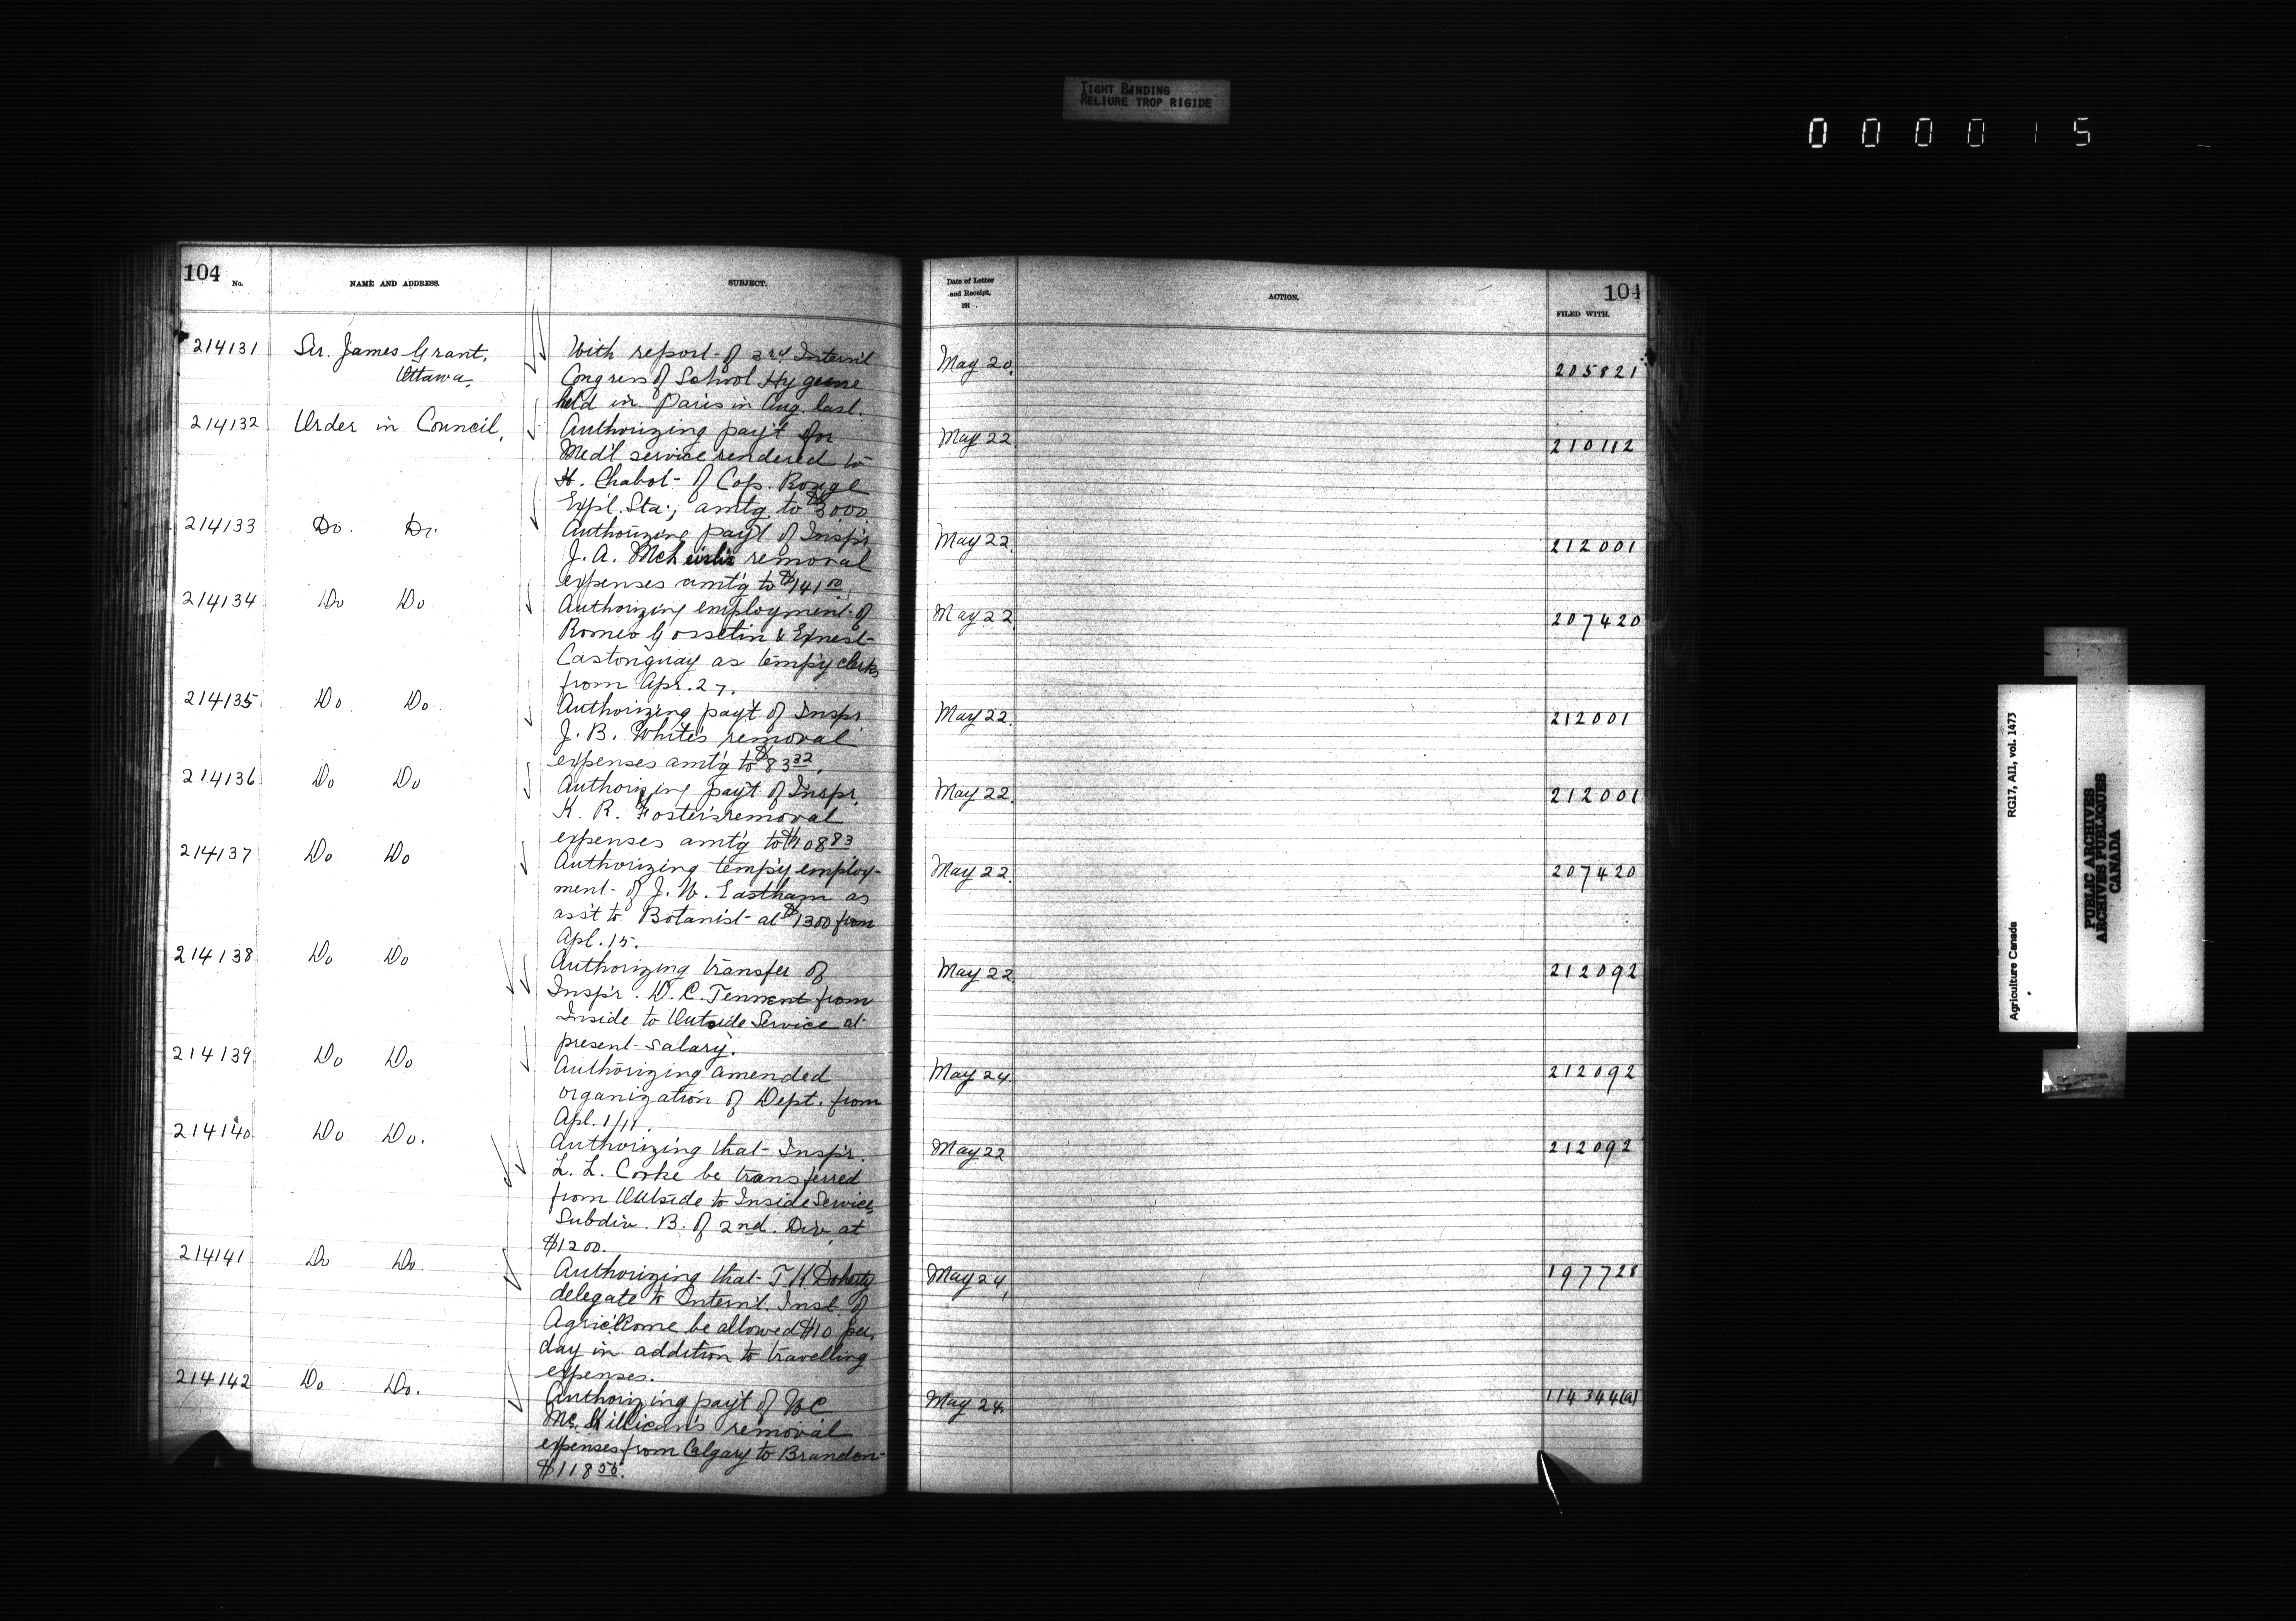 TIGHT BINDING
RELIURE TROP RIGIDE
000015
104
No.
NAME AND ADDRESS.
SUBJECT.
Date of Letter
and Receipt,
191 .
ACTION.
104
FILED WITH.
214131 Sir. James Grant, With report of 3rd Intern'l May 20. 205821
Ottawa. Congress of School Hygeine
held in Paris in Aug. last.
214132 Order in Council, Authorizing pay't for May 22. 210112
Med'l service rendered to
H. Chabot of Cap. Rouge
Exp'l. Sta.; amtg. to $3000
214133 Do. Do. Authorizing pay't of Insp'r May 22. 212001
J. A. removal
expenses amt'g to $141 00
214134 Do Do Authorizing employment of May 22. 207420
Romeo Gosselin & Ernest
Castonguay as temp'y clerks
from Apr. 27.
214135 Do. Do. Authorizing pay't of Inspr May 22. 212001
J. B. White's removal
expenses amt'g to $83 32.
214136 Do Do Authorizing pay't of Inspr. May 22. 212001
K. R. Foster's removal
expenses amt'g to $108 83
214137 Do Do Authorizing temp'y employ- May 22. 207420
ment of J. W. Eastham as
ass't to Botanist at $1300 from
Apl. 15.
214138 Do Do Authorizing transfer of May 22. 212092
Insp'r. D. C. Tennent from
Inside to Outside Service at
present salary.
214139 Do Do Authorizing amended May 24. 212092
organization of Dept. from
Apl. 1/11.
214140 Do Do. Authorizing that Insp'r. May 22 212092
L. L. Corke be transferred
from Outside to Inside Service,
Subdiv. B. of 2nd. Div. at
$1200.
214141 Do Do Authorizing that T K Doherty May 24, 197728
delegate to Intern'l. Inst. of
Agric. Rome be allowed $10 per
day in addition to travelling
expenses.
214142 Do Do. Authorizing pay't of W C May 24. 114344(a)
McKillican's removal
expenses from Calgary to Brandon
$118 50.
Agriculture Canada RG17, AII, vol. 1473
PUBLIC ARCHIVES
ARCHIVES PUBLIQUES
CANADA